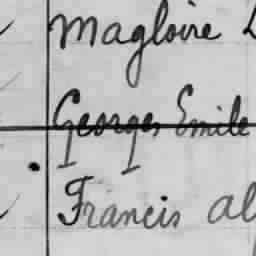 Magloire
Georges Emile
Francis Al